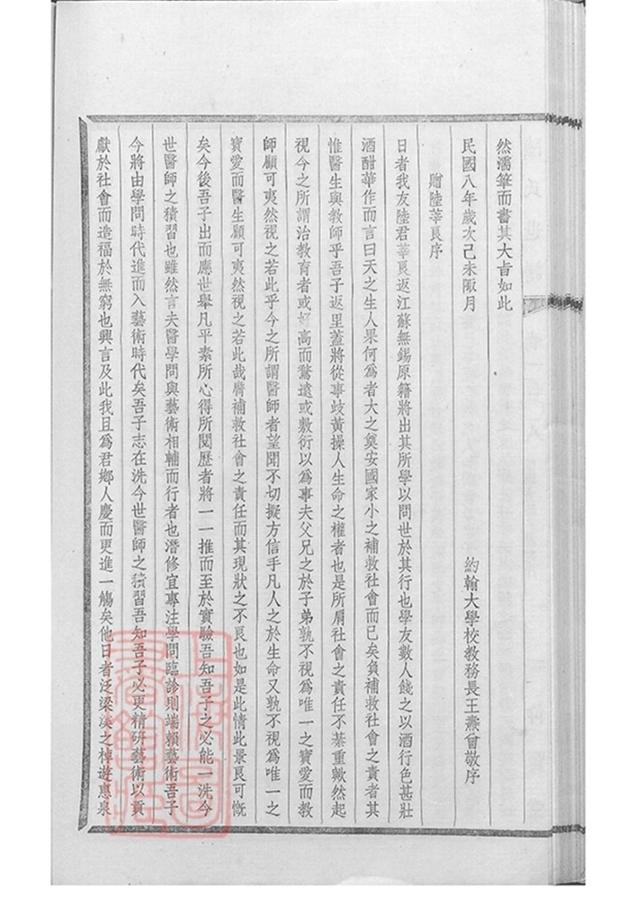 然濡筆而書其大旨如此
民國八年歲次己未陬月
約翰大學校教務長王熹曾敬序
贈陸莘良序
日者我友陸君莘良返江蘇無錫原籍將出其所學以問世於其行也學友數人餞之以酒行色甚壯
酒酣華作而言曰天之生人果何為者大之奠安國家小之補救社會而已矣負補救社會之責者其
惟醫生與教師乎吾子返里蓋將從事岐黃操人生命之權者也是所肩社會之責任不綦重歟然起
視今之所謂治教育者或好高而騖遠或敷衍以為事夫父兄之於子弟孰不視為唯一之寶愛而教
師顧可夷然視之若此乎今之所謂醫師者望聞不切擬方信手凡人之於生命又孰不視為唯一之
寶愛而醫生顧可夷然視之若此哉膺補救社會之責任而其現狀之不良也如是此情此景良可慨
矣今後吾子出而應世舉凡平素所心得所閱歷者將一一推而至於實驗吾知吾子之必能一洗今
世醫師之積習也雖然言夫醫學問與藝術相輔而行者也潛修宜專注學問臨診則端賴藝術吾子
今將由學問時代進而入藝術時代矣吾子志在洗今世醫師之積習吾知吾子必更精研藝術以貢
獻於社會而造福於無窮也興言及此我且為君鄉人慶而更進一觴矣他日者泛梁溪之棹遊惠泉